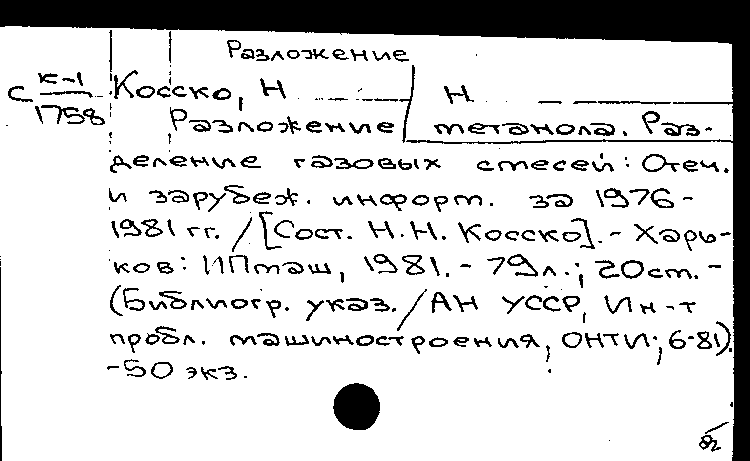 Разложение
С К-1 Косско, Н Н
1758 Разложение метанола. Раз-
деление газовых смесей: Отеч.
и зарубеж. информ. за 1976-
1981 гг. / [Сост. Н.Н. Косско]. - Харь-
ков: ИПмаш, 1981. - 79л.; 20см. -
(Библиогр. указ. / АН УССР, Ин-т
пробл. машиностроения, ОНТИ; 6-81).
-50 экз.